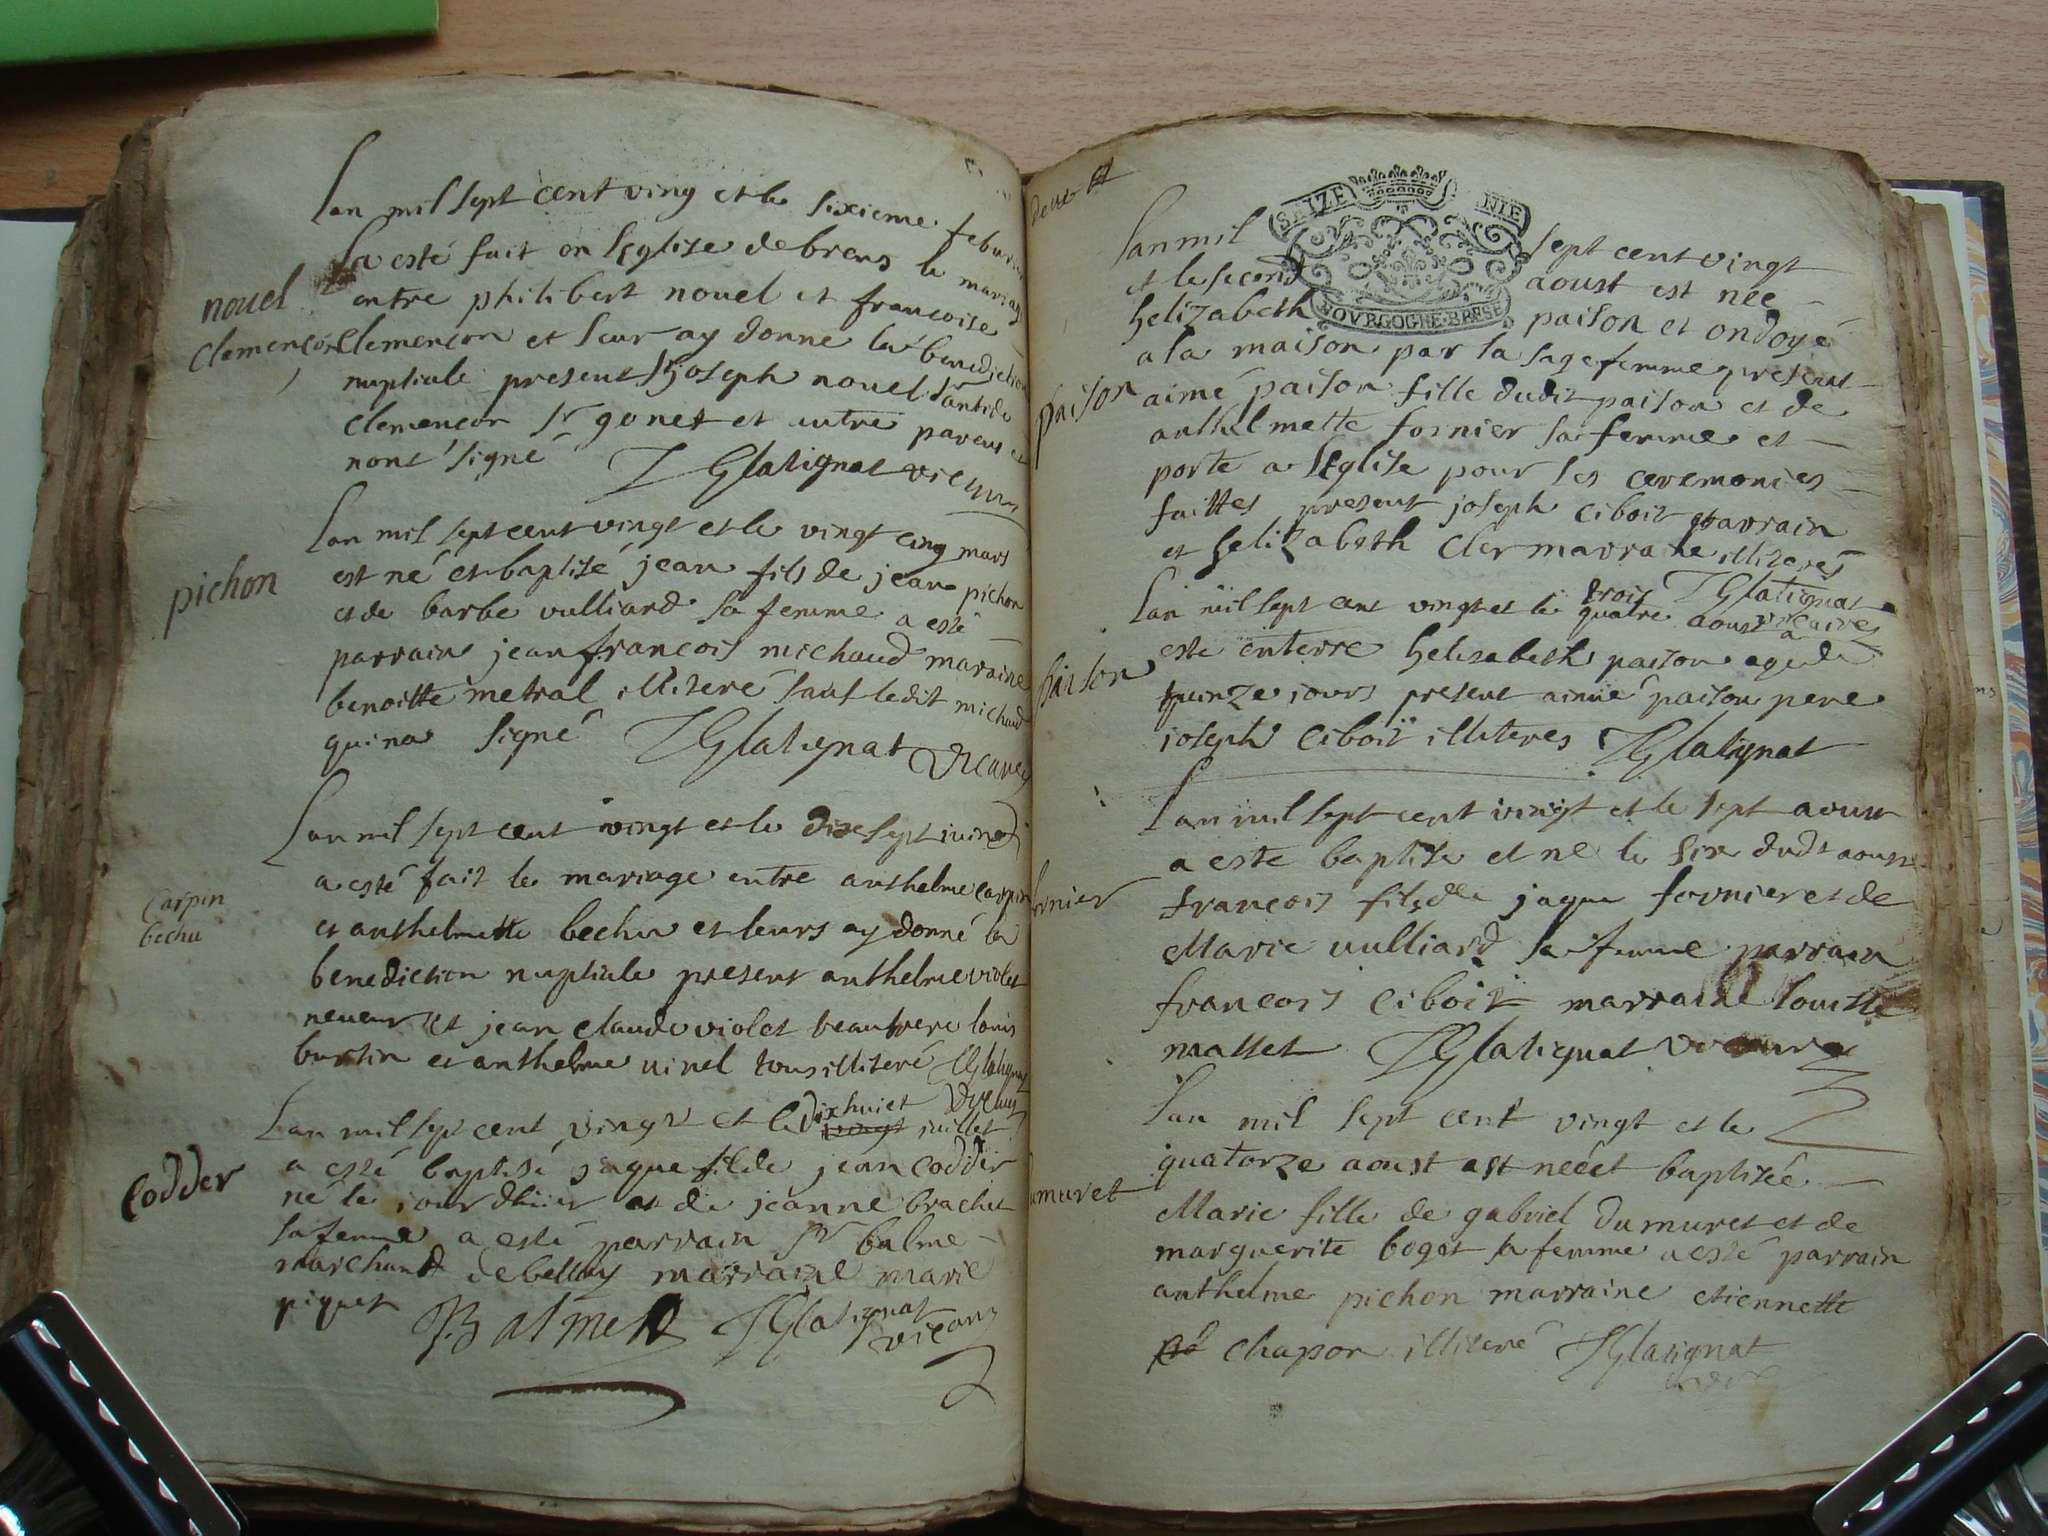 Lan mil sept cent ving et le sixieme feburier
a esté fait en leglise de brens le mariage
nouel
entre philibert nouel et francoise
clemencon
clemencon et leur ay donne la benediction
nuptiale present joseph nouel
clemencon sr gonet et autre parens et
nont signé JGlatignat vicaire
Lan mil sept cent vingt et le vingt cinq mars
est né et baptisé jean fils de jean pichon
pichon
et de barbe vulliard sa femme a esté
parrain jean francois michaud maraine
benoitte metral illiteré sauf ledit michaud
qui na signé JGlatignat vicaire
Lan mil sept cent vingt et le dixsept juin
a esté fait le mariage entre anthelme carpin
carpin
bechu
et anthelmette bechu et leurs ay donné la
benediction nuptiale present anthelme violet
neveur et jean claude violet beaufrere louis
burtin et anthelme vinel tous illiteré JGlatignat
vicaire
Lan mil sept cent vingt et le dixhuict vingt juillet
a esté baptisé jaque fils de jean codder
codder
né le jour dhier et de jeanne brachet
sa femme a esté parrain sr balme
marchand de belley marraine marie
piquet Balme JGlatignat
vicaire
SEIZE NIE
BOVRGOGNE·BRESSE
Lan mil sept cent vingt
et le second aoust est nee
helizabeth paison et ondoyé
a la maison par la sagefemme present
paison
aimé paison fille dudit paison et de
anthelmette fornier sa femme et
porte a leglise pour les ceremonies
faittes present joseph ciboit parrain
et helizabeth cler marraine illiterés
JGlatignat
vicaire
Lan mil sept cent vingt et le trois quatre aoust a
este enterre helisabeth paison age de
paison
quinze jours present aimé paison pere
joseph ciboit illiteres JGlatignat
Lan mil sept cent vingt et le sept aoust
a este baptise et ne le six dudt aoust
francois fils de jaque fornier et de
fornier
Marie vulliard sa femme parrain
francois ciboit marraine louise
masset JGlatignat vicaire
Lan mil sept cent vingt et le
quatorze aoust est neé et baptiseé
dumuret
Marie fille de gabriel dumuret et de
marguerite boget sa femme a esté parrain
anthelme pichon marraine etiennette
chapon illiteré JGlatignat